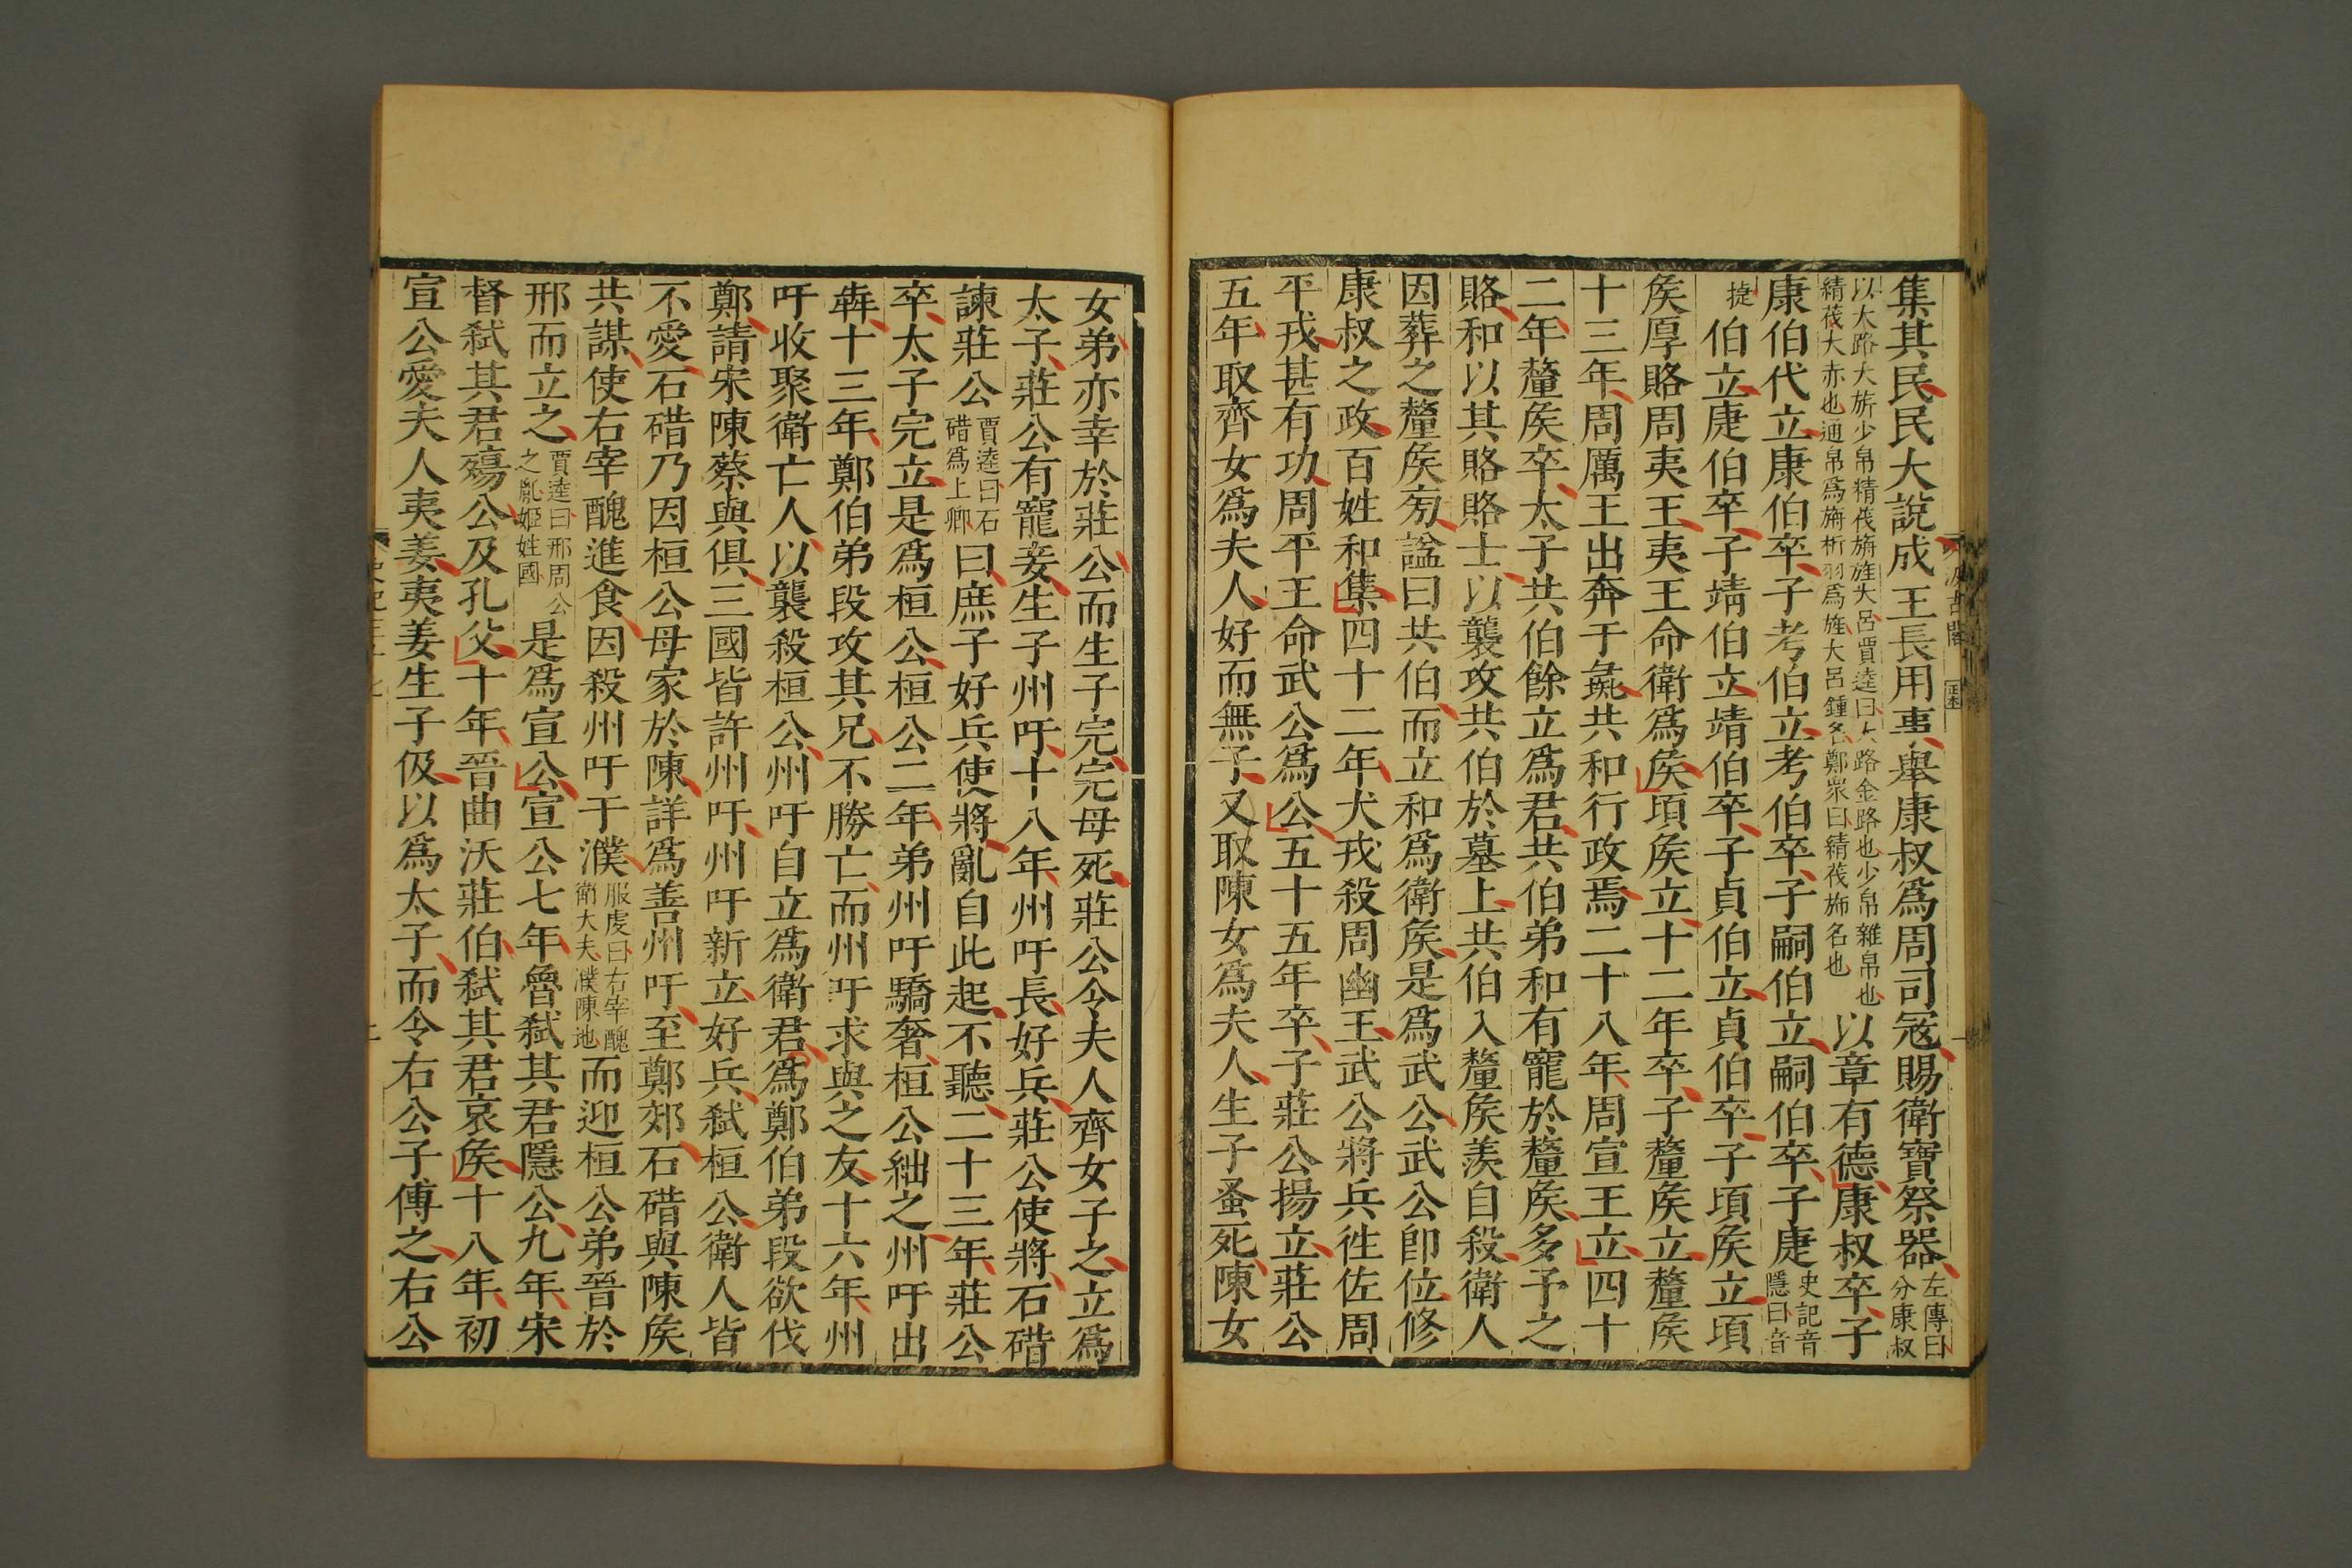 集其民民大說成王長用事舉康叔爲周司寇賜衛寶祭器左傳曰分康叔
以大路大旂少帛綪茷旃旌大呂賈逵曰大路金路也少帛雜帛也綪茷大赤也通帛爲旃析羽爲旌大呂鍾名鄭衆曰綪茷旆名也以章有德康叔卒子
康伯代立康伯卒子考伯立考伯卒子嗣伯立嗣伯卒子㨗史記音隱曰音
捷伯立㨗伯卒子靖伯立靖伯卒子貞伯立貞伯卒子頃矦立頃
矦厚賂周夷王夷王命衛爲矦頃矦立十二年卒子釐矦立釐矦
十三年周厲王出奔于彘共和行政焉二十八年周宣王立四十
二年釐矦卒太子共伯餘立爲君共伯弟和有寵於釐矦多予之
賂和以其賂賂士以襲攻共伯於墓上共伯入釐矦羨自殺衛人
因葬之釐矦旁諡曰共伯而立和爲衛矦是爲武公武公卽位修
康叔之政百姓和集四十二年犬戎殺周幽王武公將兵徃佐周
平戎甚有功周平王命武公爲公五十五年卒子莊公揚立莊公
五年取齊女爲夫人好而無子又取陳女爲夫人生子蚤死陳女
女弟亦幸於莊公而生子完完母死莊公令夫人齊女子之立爲
太子莊公有寵妾生子州吁十八年州吁長好兵莊公使將石碏
諫莊公賈逵曰石碏爲上卿曰庶子好兵使將亂自此起不聽二十三年莊公
卒太子完立是爲桓公桓公二年弟州吁驕奢桓公絀之州吁出
犇十三年鄭伯弟段攻其兄不勝亡而州吁求與之友十六年州
吁收聚衛亡人以襲殺桓公州吁自立爲衛君爲鄭伯弟段欲伐
鄭請宋陳蔡與俱三國皆許州吁州吁新立好兵弑桓公衛人皆
不愛石碏乃因桓公母家於陳詳爲善州吁至鄭郊石碏與陳矦
共謀使右宰醜進食因殺州吁于濮服虔曰右宰醜衛大夫濮陳地而迎桓公弟晉於
邢而立之賈逵曰邢周公之胤姬姓國是爲宣公宣公七年魯弑其君隱公九年宋
督弑其君殤公及孔父十年晉曲沃莊伯弑其君哀矦十八年初
宣公愛夫人夷姜夷姜生子伋以爲太子而令右公子傅之右公